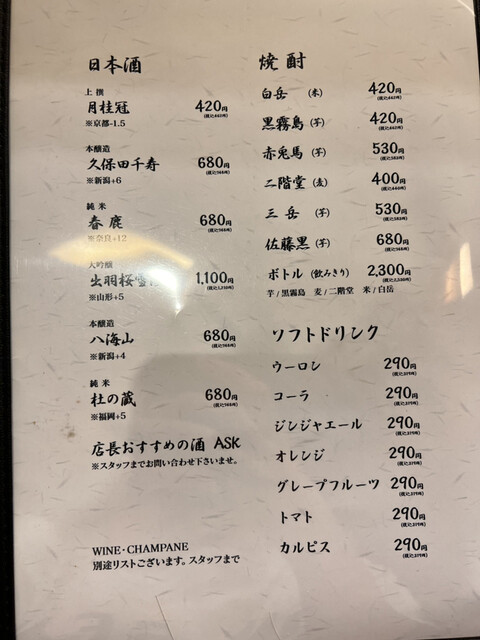 日本酒
上撰
月桂冠 420円
(税込462円)
※京都-1.5
本醸造
久保田千寿 680円
(税込748円)
※新潟+6
純米
春鹿 680円
(税込748円)
※奈良+12
大吟醸
出羽桜雪 1,100円
(税込1,210円)
※山形+5
本醸造
八海山 680円
(税込748円)
※新潟+4
純米
杜の蔵 680円
(税込748円)
※福岡+5
店長おすすめの酒 ASK
※スタッフまでお問い合わせ下さいませ。
WINE・CHAMPANE
別途リストございます。スタッフまで
焼酎
白岳 (米) 420円
(税込462円)
黒霧島 (芋) 420円
(税込462円)
赤兎馬 (芋) 530円
(税込583円)
二階堂 (麦) 400円
(税込440円)
三岳 (芋) 530円
(税込583円)
佐藤黒 (芋) 680円
(税込748円)
ボトル (飲みきり) 2,300円
芋/黒霧島 麦/二階堂 米/白岳
ソフトドリンク
ウーロン 290円
(税込319円)
コーラ 290円
(税込319円)
ジンジャエール 290円
(税込319円)
オレンジ 290円
(税込319円)
グレープフルーツ 290円
(税込319円)
トマト 290円
(税込319円)
カルピス 290円
(税込319円)